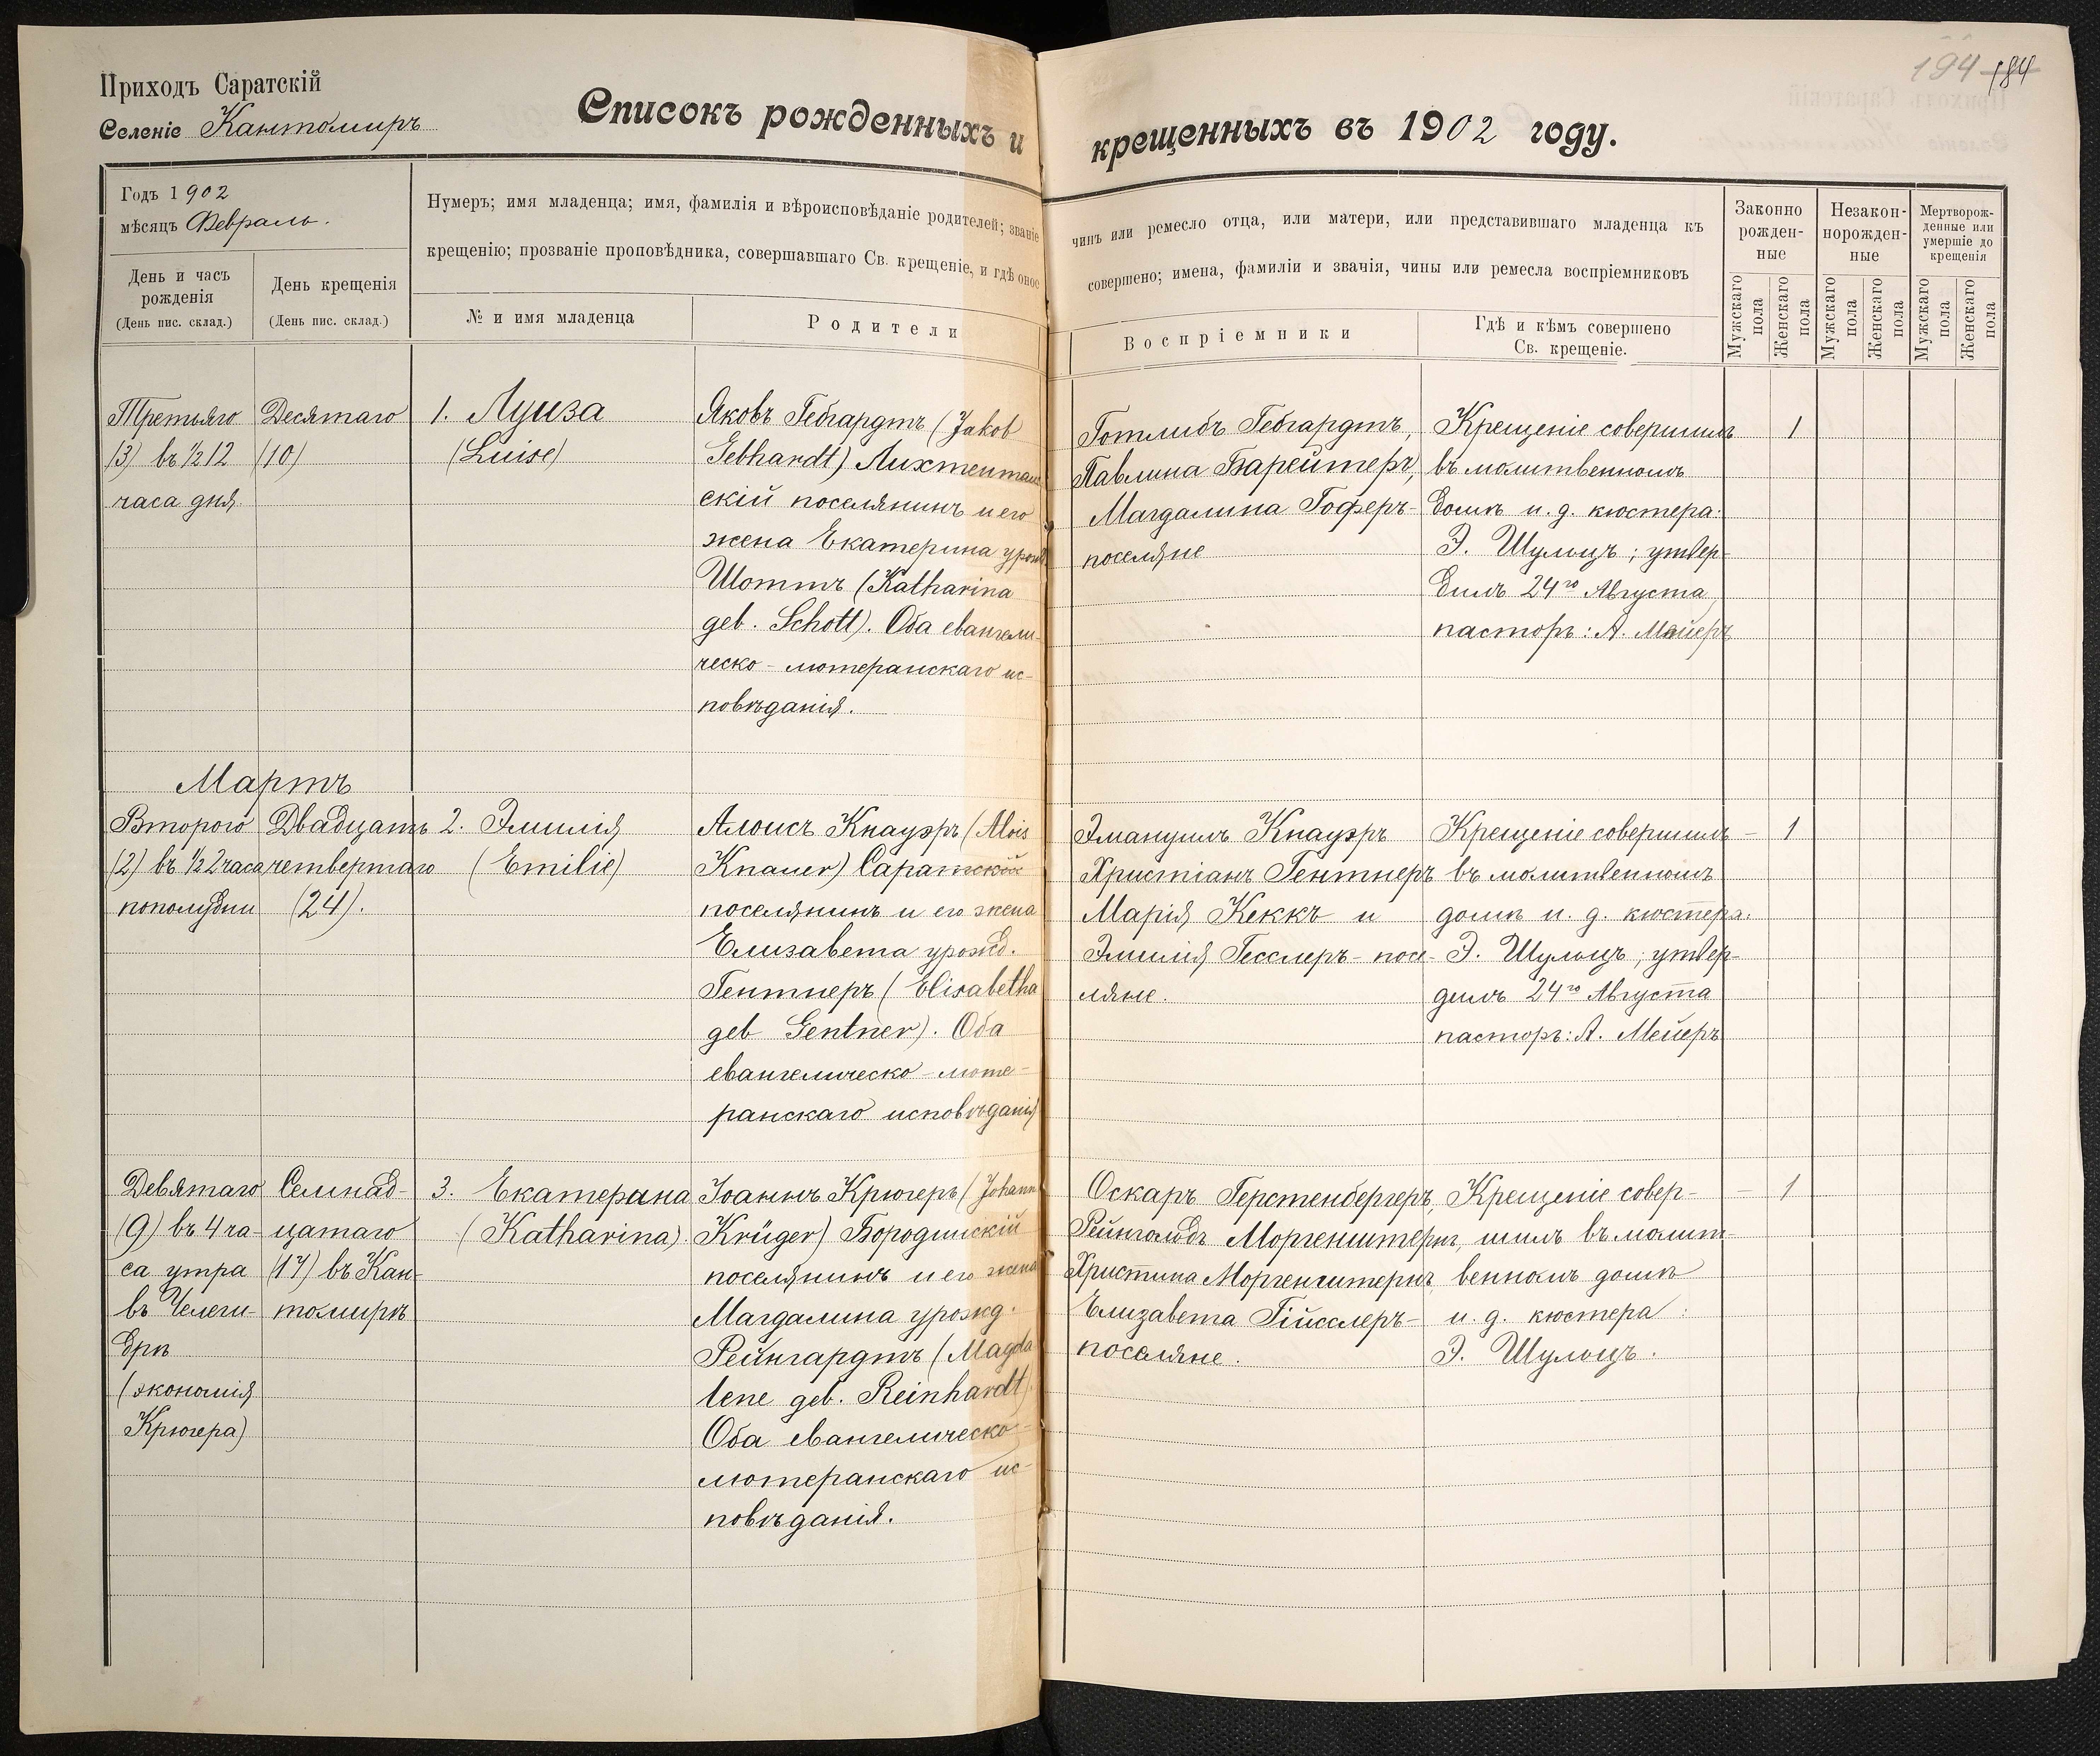 194 184
Приходъ Саратскій
Селеніе Кантомиръ
Списокъ рожденныхъ и крещенныхъ въ 1902 году.
Годъ 1902
мѣсяцъ Февраль.
День и часъ
рожденія
(День пис. склад.)
День крещенія
(День пис. склад.)
Нумеръ; имя младенца; имя, фамилія и вѣроисповѣданіе родителей; званіе
крещенію; прозваніе проповѣдника, совершавшаго Св. крещеніе, и гдѣ оное
№ и имя младенца
Родители
чинъ или ремесло отца, или матери, или представившаго младенца къ
совершено; имена, фамиліи и званія, чины или ремесла воспріемниковъ
Воспріемники
Гдѣ и кѣмъ совершено
Св. крещеніе.
Законно
рожден-
ные
Незакон-
норожден-
ные
Мертворож-
денные или
умершіе до
крещенія
Мужскаго
пола
Женскаго
пола
Мужскаго
пола
Женскаго
пола
Мужскаго
пола
Женскаго
пола
Третьяго
(3) въ ½ 12
часа дня
Десятаго
(10)
1. Луиза
(Luise)
Яковъ Гебгардтъ (Jakob
Gebhardt) Лихтенталь
скій поселянинъ и его
жена Екатерина урожд
Шоттъ (Katharina
geb. Schott). Оба евангели-
ческо-лютеранскаго ис-
повѣданія.
Готлибъ Гебгардтъ,
Павлина Барейтеръ,
Магдалина Гоферъ-
поселяне
Крещеніе совершилъ
въ молитвенномъ
домѣ и. д. кюстера:
Э. Шульцъ; утвер-
дилъ 24го Августа,
пасторъ: А. Мейеръ
1
Мартъ
Второго
(2) въ ½ 2 часа
пополудни
Двадцать
четвертаго
(24).
2. Эмилія
(Emilie)
Алоисъ Кнауэръ (Alois
Knauer) Саратскій
поселянинъ и его жена
Елизавета урожд.
Гентнеръ (Elisabetha
geb Gentner). Оба
евангелическо-люте-
ранскаго исповѣданія
Эмануилъ Кнауэръ
Христіанъ Гентнеръ
Марія Кеккъ и
Эмилія Гесслеръ - посе-
ляне.
Крещеніе совершилъ
въ молитвенномъ
домѣ и. д. кюстера:
Э. Шульцъ; утвер-
дилъ 24го Августа
пасторъ: А. Мейеръ
– 1
Девятаго
(9) въ 4 ча-
са утра
въ Челеги-
дрѣ
(экономія
Крюгера)
Семнад-
цатаго
(17) въ Кан-
томирѣ
3. Екатерина
(Katharina)
Іоаннъ Крюгеръ (Johann
Krüger) Бородинскій
поселянинъ и его жена
Магдалина урожд.
Рейнгардтъ (Magda
lene geb. Reinhardt)
Оба евангелическо-
лютеранскаго ис-
повѣданія.
Оскаръ Герстенбергеръ,
Рейнгольдъ Моргенштернъ,
Христина Моргенштернъ
Елизавета Гійсслеръ-
поселяне.
Крещеніе совер-
шилъ въ молит-
венномъ домѣ
и. д. кюстера:
Э. Шульцъ.
– 1